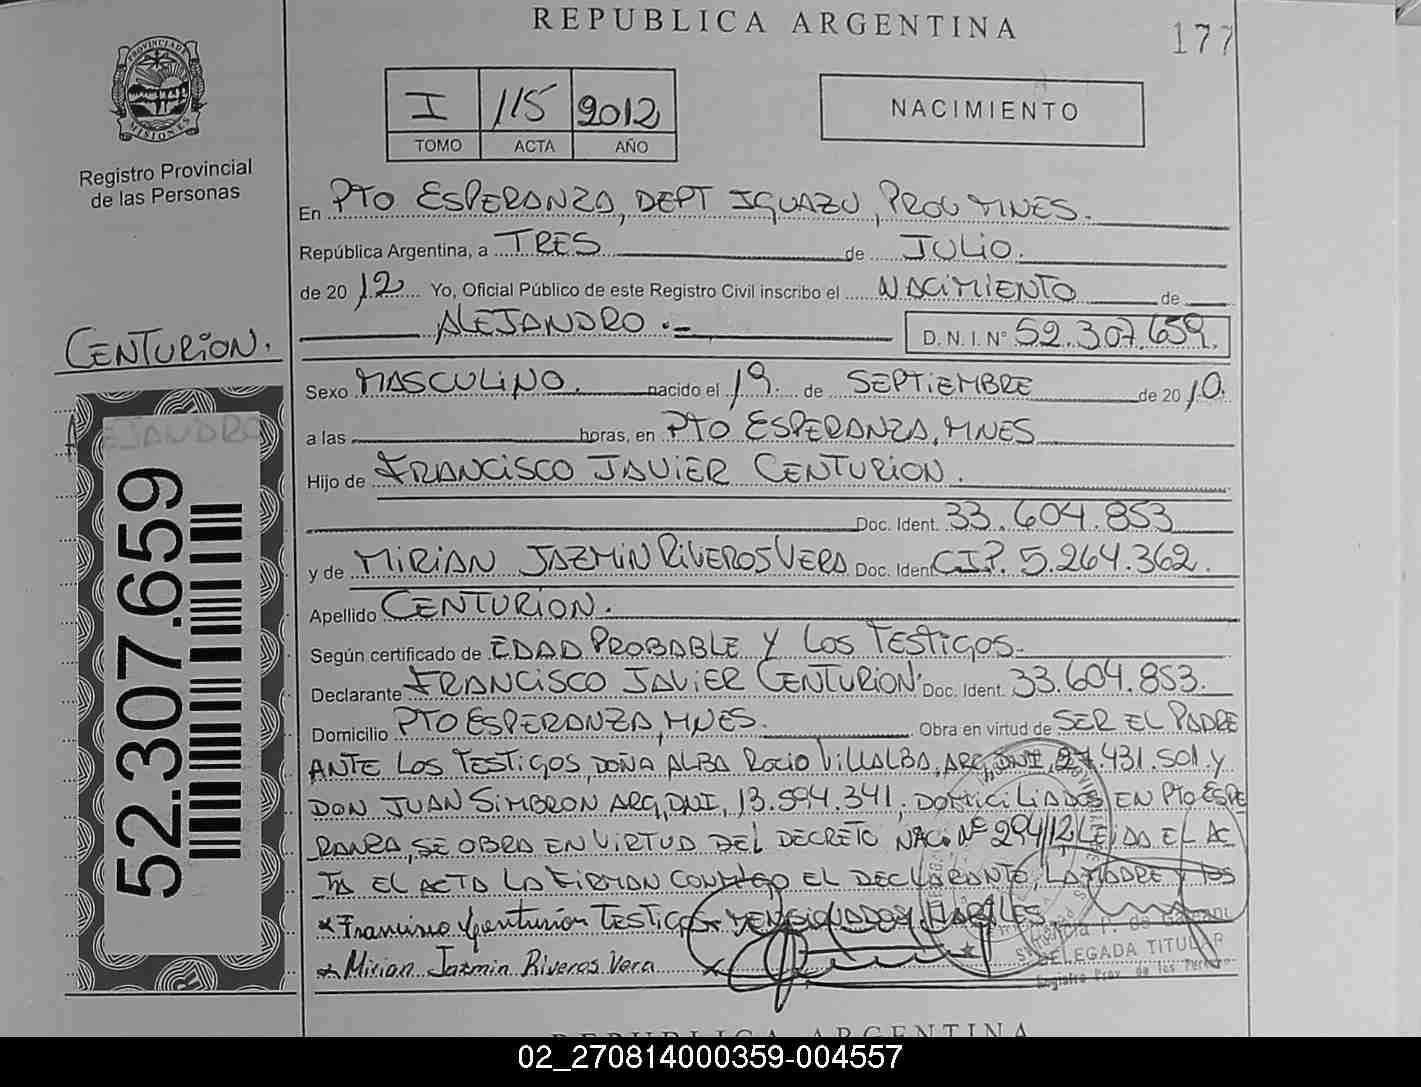 REPUBLICA ARGENTINA
177
PROVINCIA DE MISIONES
Registro Provincial
de las Personas
I 115 2012
TOMO ACTA AÑO
NACIMIENTO
En PTO ESPERANZA, DEPT IGUAZU, PROV MNES.
República Argentina, a TRES de JULIO.
de 20 12 Yo, Oficial Público de este Registro Civil inscribo el NACIMIENTO de
ALEJANDRO .-
D. N. I. N° 52.307.659.
CENTURION.
ALEJANDRO
52.307.659
Sexo MASCULINO. nacido el 19. de SEPTIEMBRE de 20 10.
a las horas, en PTO ESPERANZA, MNES
Hijo de FRANCISCO JAVIER CENTURION.
Doc. Ident. 33.604.853
y de MIRIAN JAZMIN RIVEROS VERA Doc. Ident. C.I.P. 5.264.362.
Apellido CENTURION.
Según certificado de EDAD PROBABLE Y LOS TESTIGOS.
Declarante FRANCISCO JAVIER CENTURION. Doc. Ident. 33.604.853.
Domicilio PTO ESPERANZA, MNES. Obra en virtud de SER EL PADRE
ANTE LOS TESTIGOS, DOÑA ALBA ROCIO VILLALBA, ARG, DNI, 27.431.501 y
DON JUAN SIMBRON ARG, DNI, 13.594.341, DOMICILIADOS EN PTO ESPE
RANZA, SE OBRA EN VIRTUD DEL DECRETO NAC. N° 294/12 LEIDA EL AC
TA EL ACTA LA FIRMAN CONMIGO EL DECLARANTE, LA MADRE Y LOS
* Francisco Centurion TESTIGOS MENCIONADOS
* Mirian Jazmin Riveros Vera
DELEGADA TITULAR
Registro Prov. de las Personas
REPUBLICA ARGENTINA
02_270814000359-004557